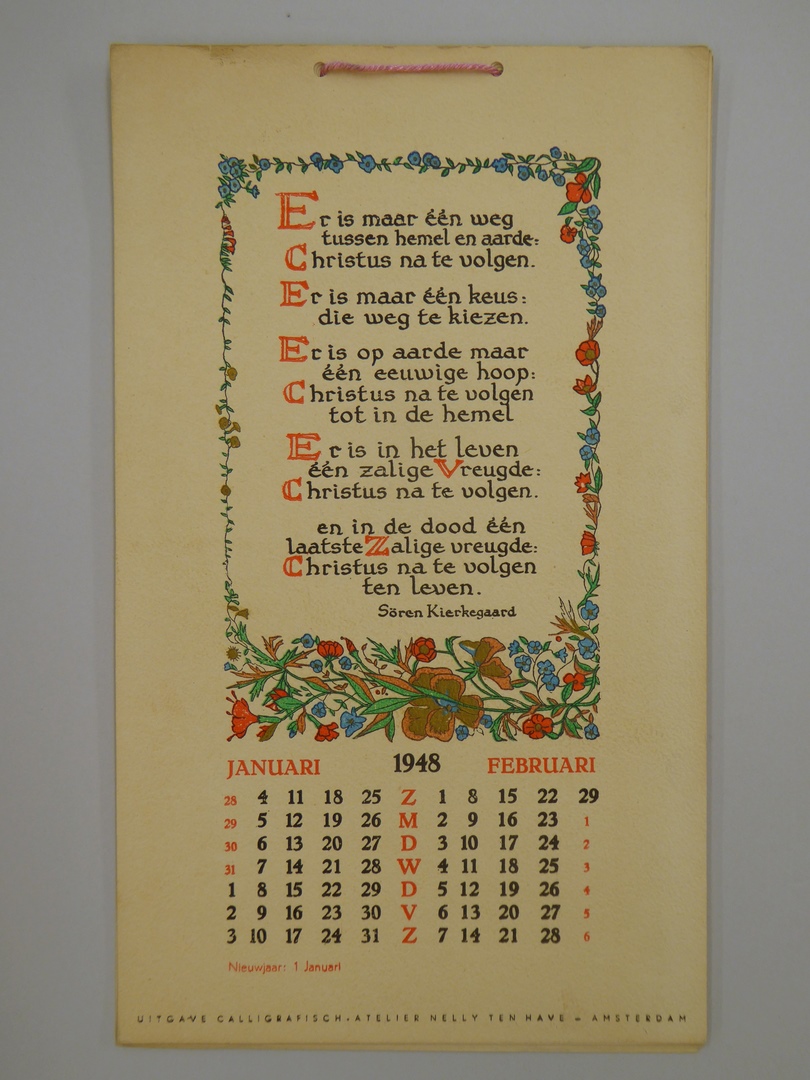 Er is maar één weg
tussen hemel en aarde:
Christus na te volgen.
Er is maar één keus:
die weg te kiezen.
Er is op aarde maar
één eeuwige hoop:
Christus na te volgen
tot in de hemel
Er is in het leven
één zalige Vreugde:
Christus na te volgen.
en in de dood één
laatste Zalige vreugde:
Christus na te volgen
ten leven.
Sören Kierkegaard
JANUARI 1948 FEBRUARI
28 4 11 18 25 Z 1 8 15 22 29
29 5 12 19 26 M 2 9 16 23 1
30 6 13 20 27 D 3 10 17 24 2
31 7 14 21 28 W 4 11 18 25 3
1 8 15 22 29 D 5 12 19 26 4
2 9 16 23 30 V 6 13 20 27 5
3 10 17 24 31 Z 7 14 21 28 6
Nieuwjaar: 1 Januari
UITGAVE CALLIGRAFISCH-ATELIER NELLY TEN HAVE - AMSTERDAM